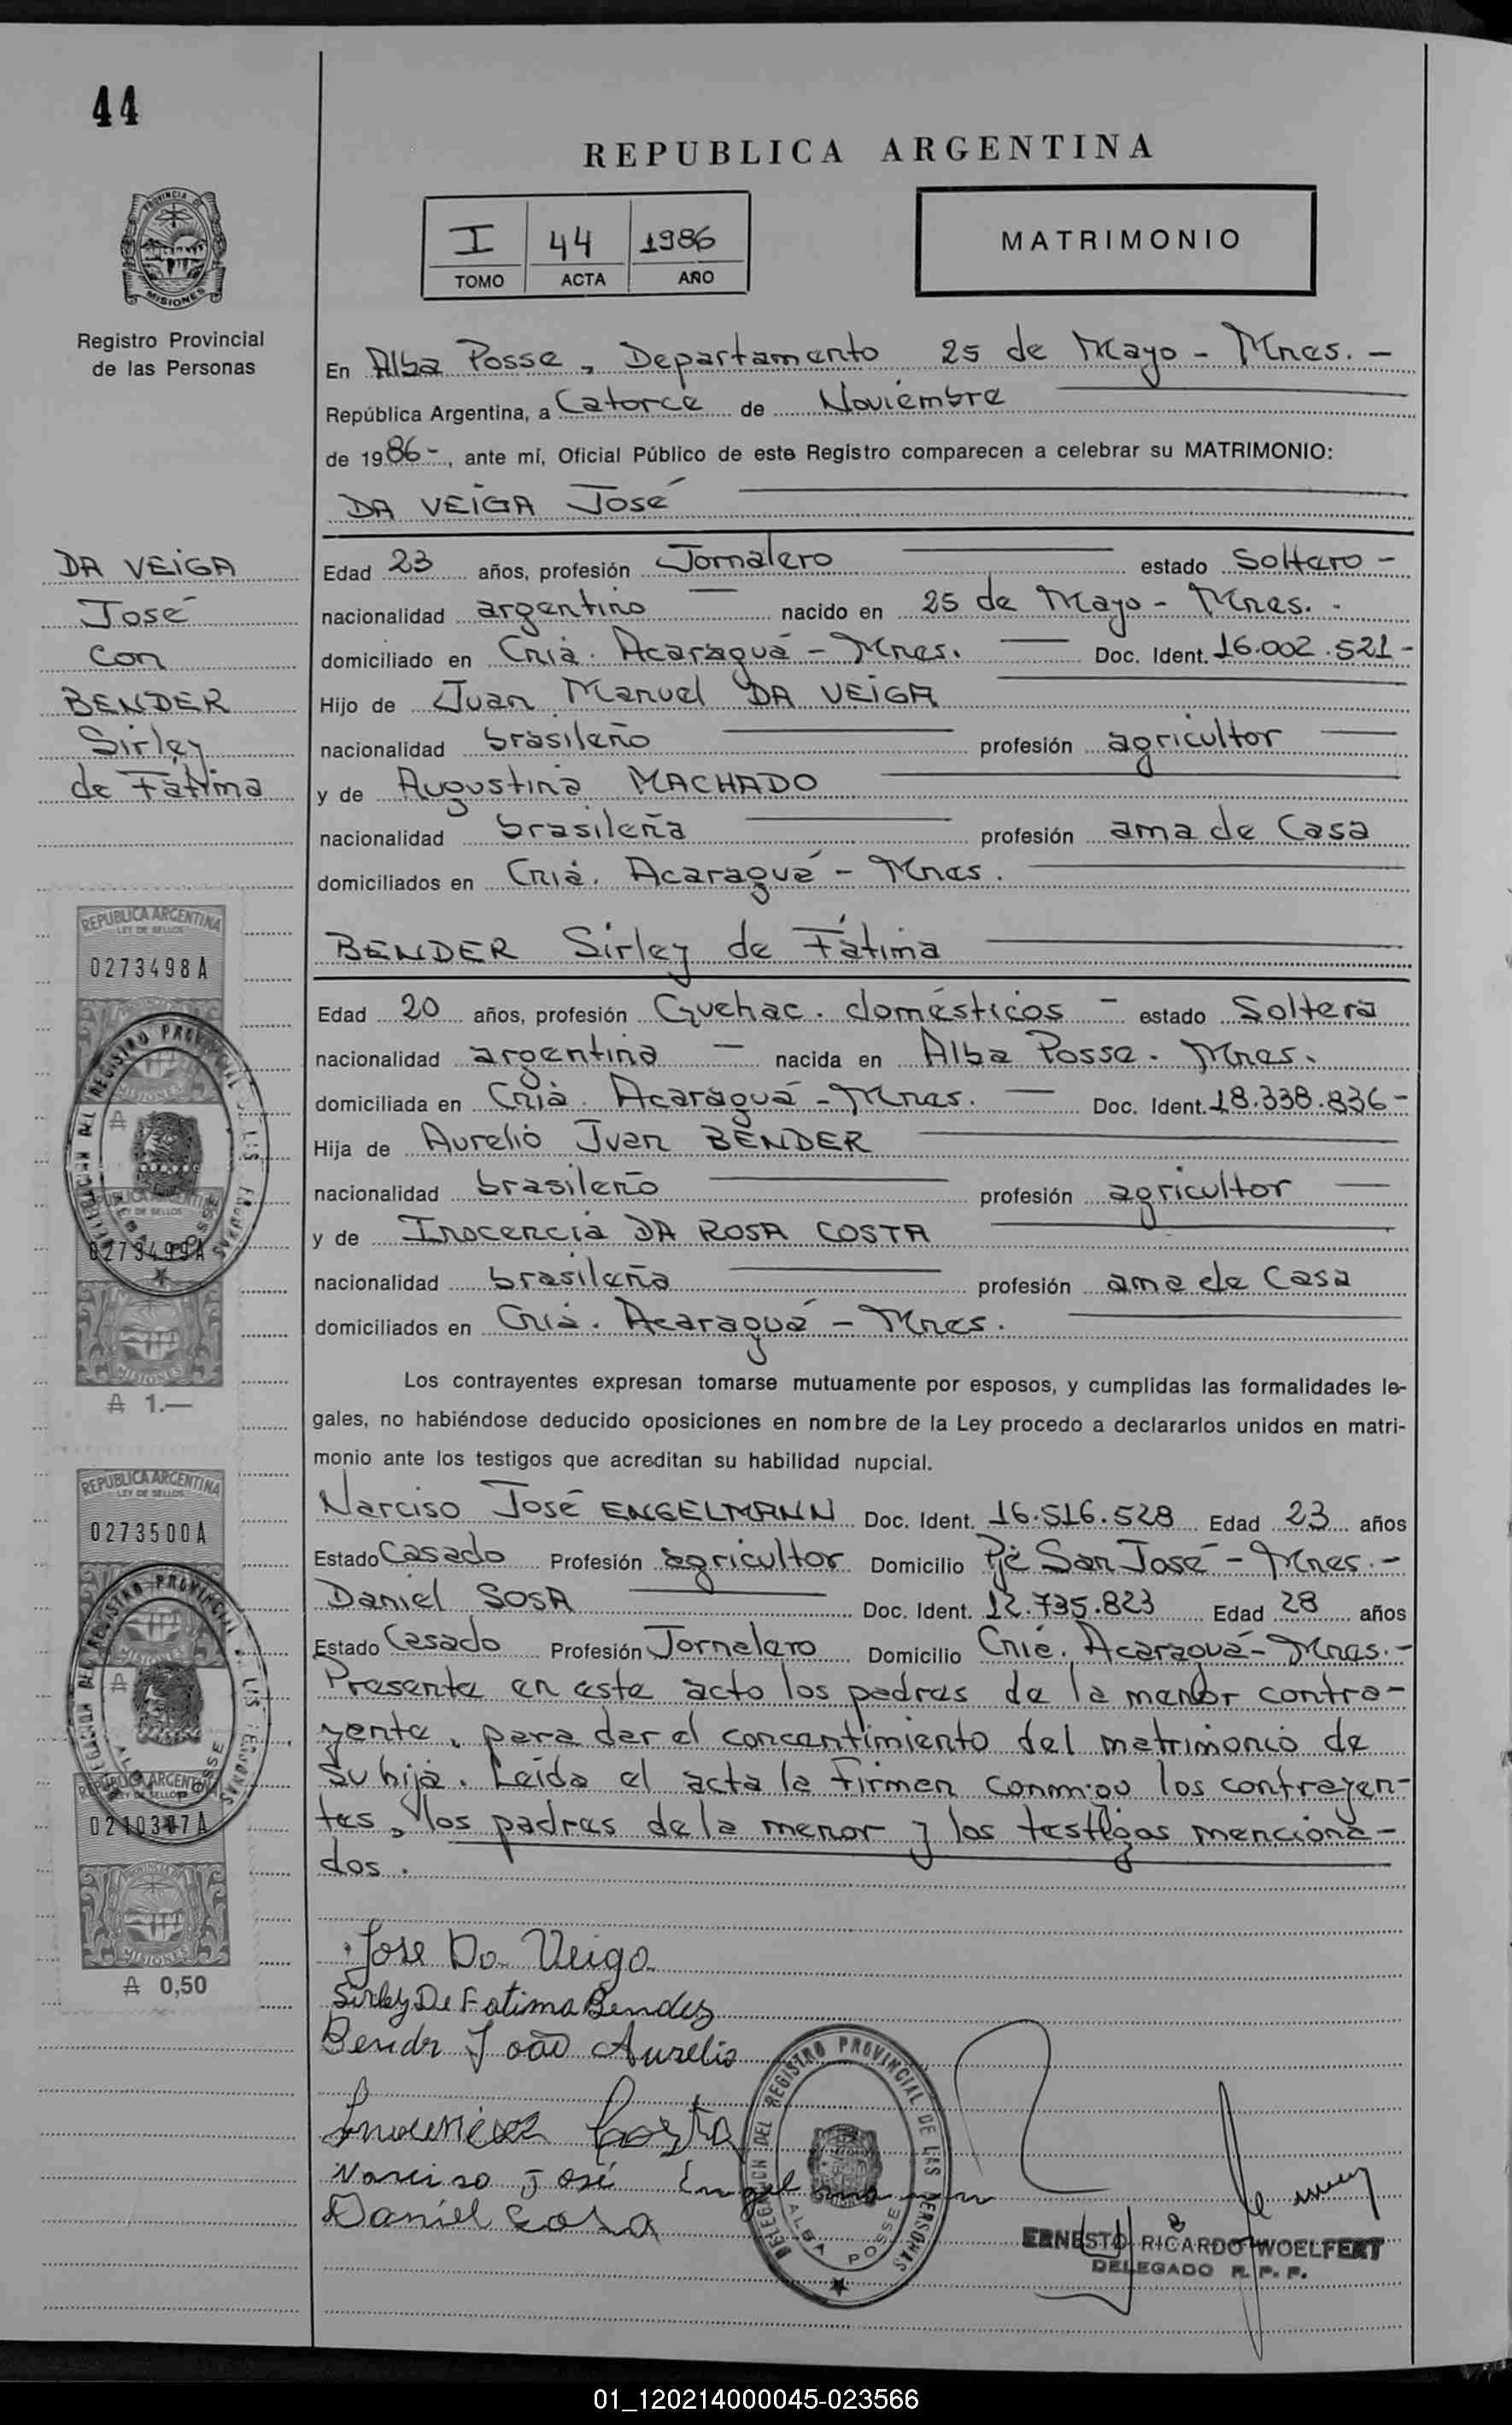 44
REPUBLICA ARGENTINA
PROVINCIA DE
MISIONES
I 44 1986
TOMO ACTA AÑO
MATRIMONIO
Registro Provincial
de las Personas
En Alba Posse, Departamento 25 de Mayo - Mnes. -
República Argentina, a Catorce de Noviembre
de 1986-, ante mí, Oficial Público de este Registro comparecen a celebrar su MATRIMONIO:
DA VEIGA José
DA VEIGA
José
con
BENDER
Sirley
de Fátima
Edad 23 años, profesión Jornalero estado Soltero -
nacionalidad argentino - nacido en 25 de Mayo - Mnes. -
domiciliado en Cnia. Acaraguá - Mnes. Doc. Ident. 16.002.521 -
Hijo de Juan Manuel DA VEIGA
nacionalidad brasileño profesión agricultor
y de Augustina MACHADO
nacionalidad brasileña profesión ama de Casa
domiciliados en Cnia. Acaraguá - Mnes.
BENDER Sirley de Fátima
Edad 20 años, profesión Quehac. domésticos - estado Soltera
nacionalidad argentina - nacida en Alba Posse - Mnes.
domiciliada en Cnia. Acaraguá - Mnes. Doc. Ident. 18.338.836 -
Hija de Aurelio Juan BENDER
nacionalidad brasileño profesión agricultor
y de Inocencia DA ROSA COSTA
nacionalidad brasileña profesión ama de Casa
domiciliados en Cnia. Acaraguá - Mnes.
Los contrayentes expresan tomarse mutuamente por esposos, y cumplidas las formalidades le-
gales, no habiéndose deducido oposiciones en nombre de la Ley procedo a declararlos unidos en matri-
monio ante los testigos que acreditan su habilidad nupcial.
Narciso José ENGELMANN Doc. Ident. 16.516.528 Edad 23 años
Estado Casado Profesión agricultor Domicilio Pje San José - Mnes. -
Daniel SOSA Doc. Ident. 12.735.823 Edad 28 años
Estado Casado Profesión Jornalero Domicilio Cnia. Acaraguá - Mnes. -
Presente en este acto los padres de la menor contra-
yente, para dar el concentimiento del matrimonio de
su hija. Leída el acta la firman conmigo los contrayen-
tes, los padres de la menor y los testigos menciona-
dos.
REPUBLICA ARGENTINA
LEY DE SELLOS
0273498A
MISIONES
DELEGACION DEL REGISTRO PROVINCIAL DE LAS PERSONAS
ALBA POSSE
0273499A
MISIONES
₳ 1.—
REPUBLICA ARGENTINA
LEY DE SELLOS
0273500A
DELEGACION DEL REGISTRO PROVINCIAL DE LAS PERSONAS
ALBA POSSE
MISIONES
₳ 0,50
Jose Da Veiga
Sirley De Fatima Bender
Bender João Aurelio
Inocencia Costa
Narciso José Engelmann
Daniel Sosa
DELEGACION DEL REGISTRO PROVINCIAL DE LAS PERSONAS
ALBA POSSE
ERNESTO RICARDO WOELFERT
DELEGADO R. P. P.
01_120214000045-023566